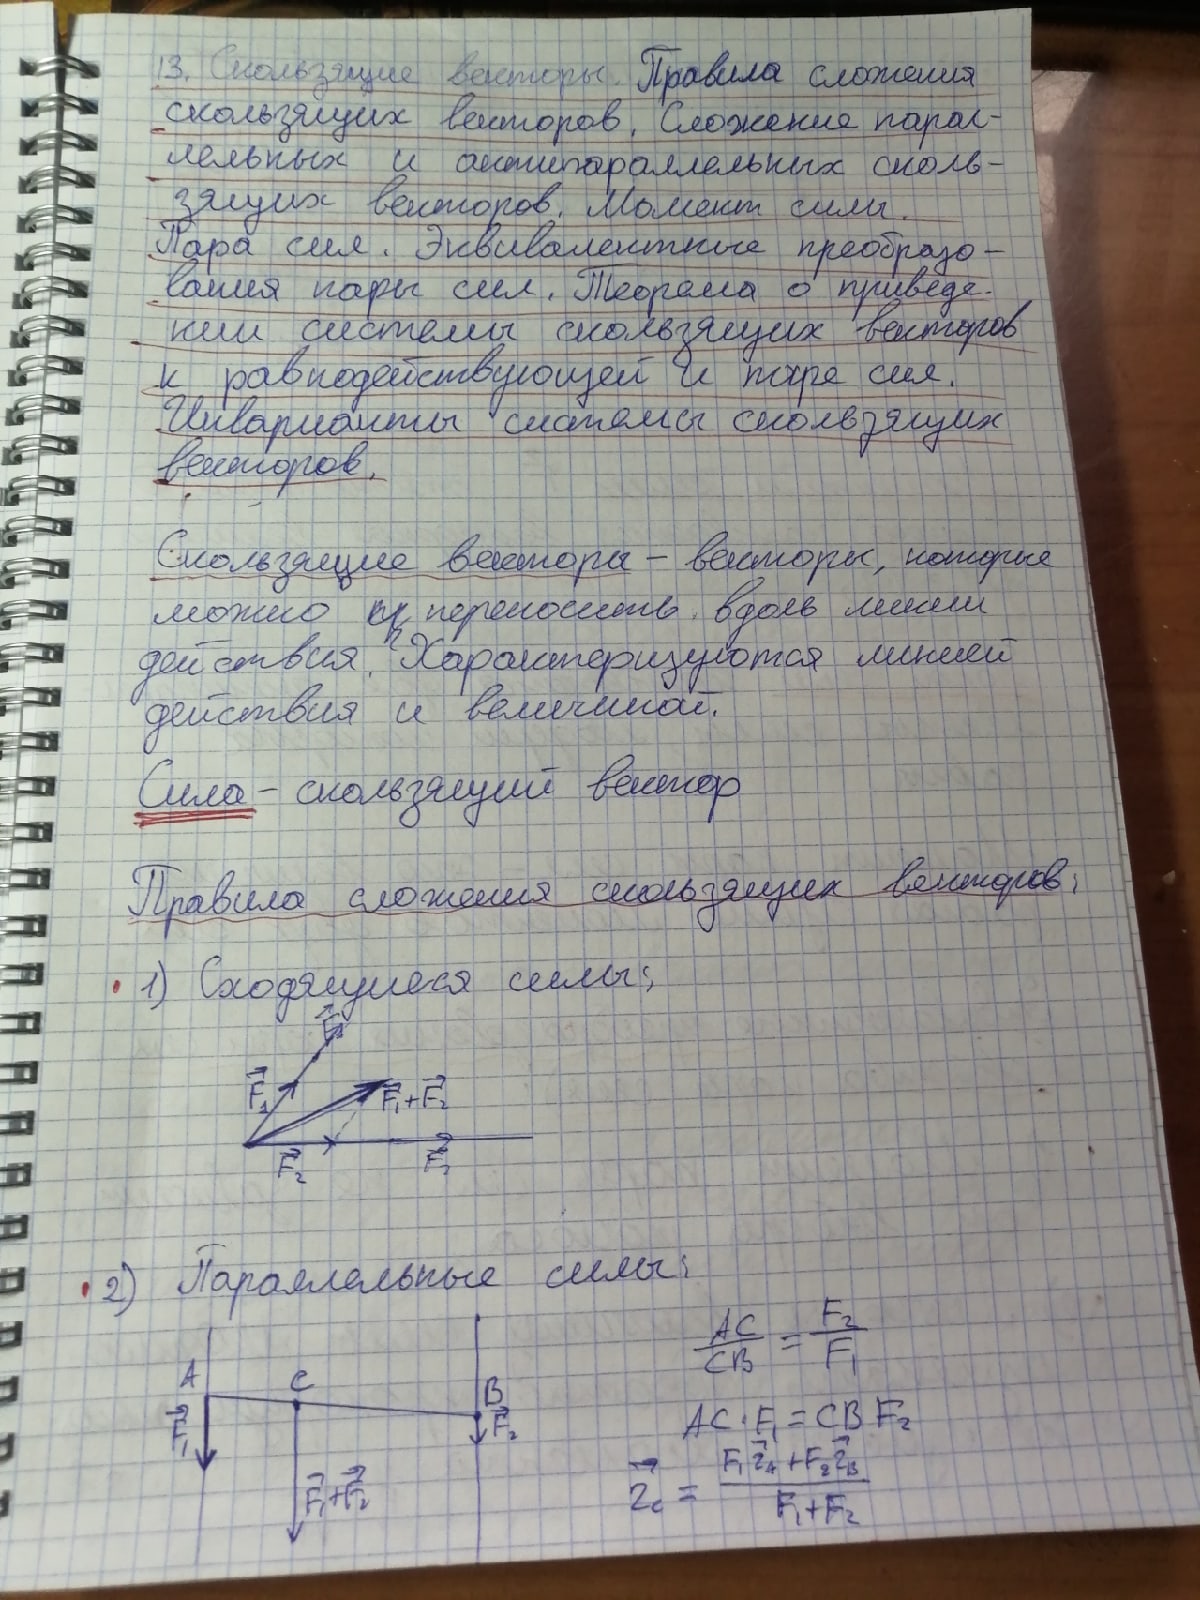 13. Скользящие векторы. Правила сложения
скользящих векторов. Сложение парал-
лельных и антипараллельных сколь-
зящих векторов. Момент силы.
Пара сил. Эквивалентные преобразо-
вания пары сил. Теорема о приведе-
нии системы скользящих векторов
к равнодействующей и паре сил.
Инварианты системы скользящих
векторов.
Скользящие вектора – векторы, которые
можно переносить вдоль линии
действия. Характеризуются линией
действия и величиной.
Сила – скользящий вектор
Правила сложения скользящих векторов:
1) Сходящиеся силы:
F⃗₁
F⃗₁ F⃗₁+F⃗₂
F⃗₂ F⃗₂
2) Параллельные силы:
AC/CB = F₂/F₁
A C B
F⃗₁ F⃗₂
AC·F₁ = CB F₂
F⃗₁+F⃗₂
r⃗c = (F₁r⃗A + F₂r⃗B)/(F₁+F₂)